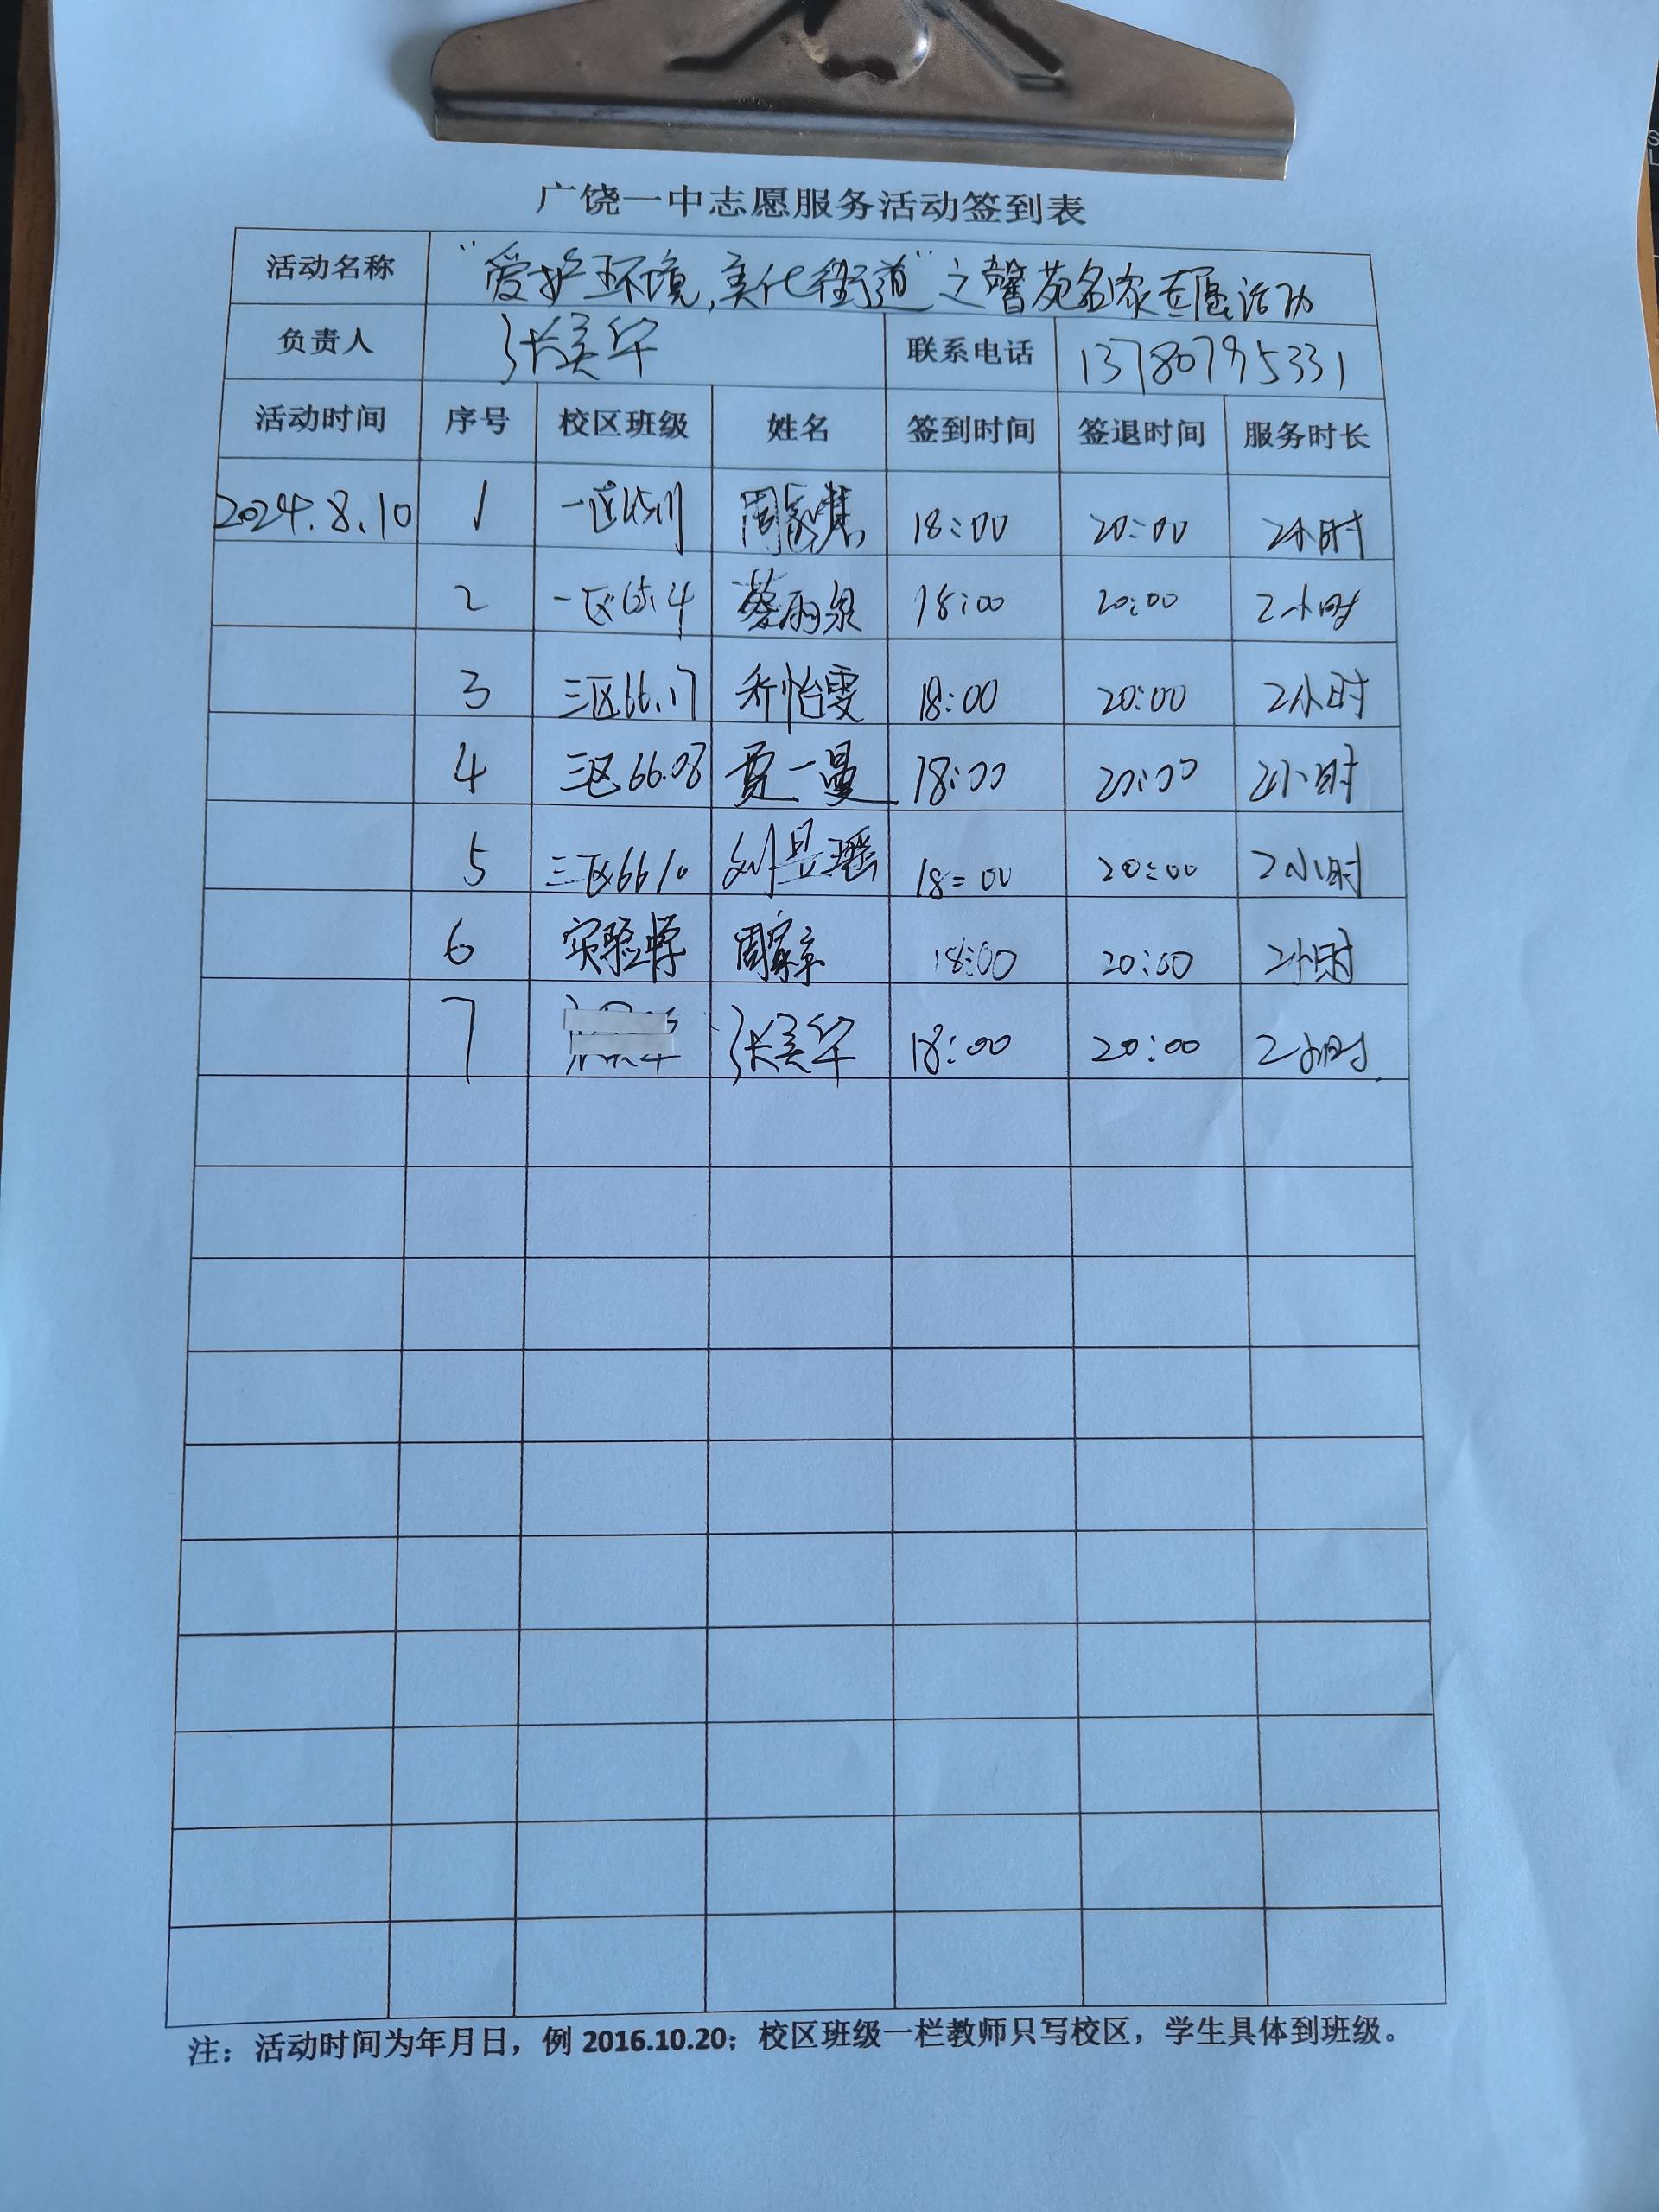 广饶一中志愿服务活动签到表
活动名称 "爱护环境,美化街道"之馨苑名家志愿活动
负责人 张美华 联系电话 13780795331
活动时间 序号 校区班级 姓名 签到时间 签退时间 服务时长
2024.8.10 1 一区 周家慧 18:00 20:00 2小时
2 一区65.4 蔡雨泉 18:00 20:00 2小时
3 三区66.17 乔怡雯 18:00 20:00 2小时
4 三区66.08 贾一曼 18:00 20:00 2小时
5 三区6610 刘昱瑶 18:00 20:00 2小时
6 实验中学 周家 18:00 20:00 2小时
7 张美华 18:00 20:00 2小时
注:活动时间为年月日,例 2016.10.20;校区班级一栏教师只写校区,学生具体到班级。